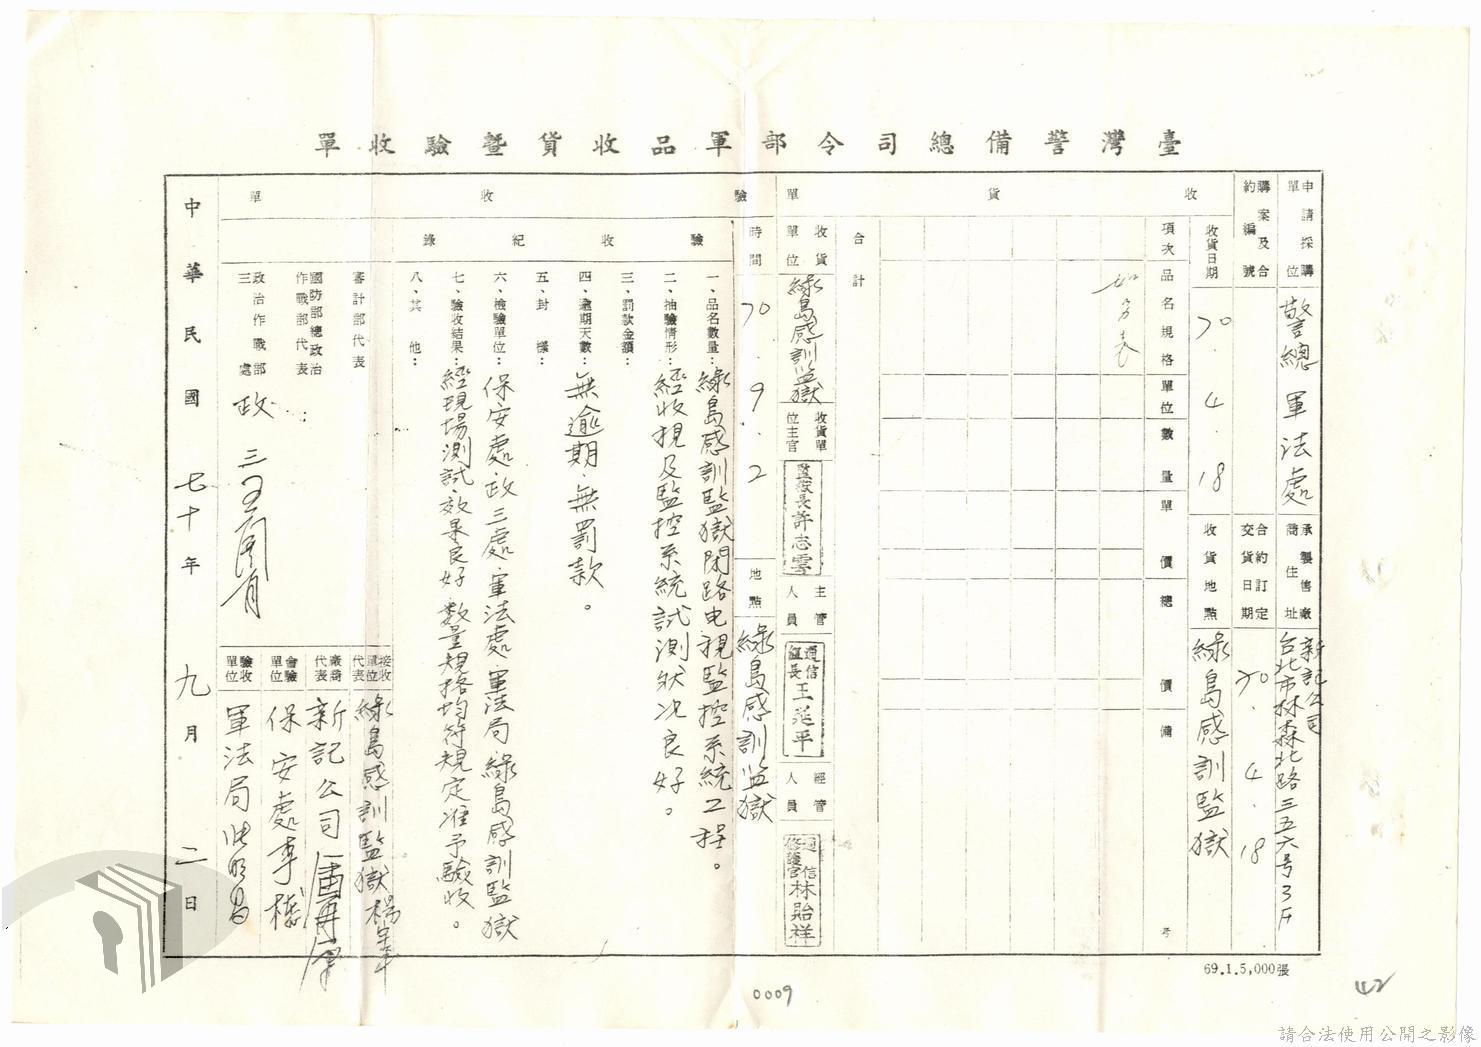 臺灣警備總司令部軍品收貨暨驗收單
申請採購單位
警總軍法處
承製售廠商住址
新記公司
台北市林森北路三五六号3F
購案及合約編號
合約訂定交貨日期
70.4.18
收貨
收貨日期
70.4.18
收貨地點
綠島感訓監獄
項次
品名規格
單位
數量
單價
總價
備考
如另表
合計
單
收貨單位
綠島感訓監獄
收貨單位主官
監獄長許志雲
主管人員
通信組長王延平
經管人員
通信修護官林貽祥
驗收單
時間
70.9.2
地點
綠島感訓監獄
驗收紀錄
一、品名數量：綠島感訓監獄閉路电視監控系統工程。
二、抽驗情形：經收視及監控系統試測狀況良好。
三、罰款金額：
四、逾期天數：無逾期.無罰款。
五、封樣：
六、檢驗單位：保安處.政三處.軍法處.軍法局.綠島感訓監獄
七、驗收結果：經現場測試.效果良好.數量規格均符規定准予驗收。
八、其他：
審計部代表
國防部總政治作戰部代表
政治作戰部三處
政三
接收單位代表
綠島感訓監獄
廠商代表
新記公司
會驗單位
保安處
驗收單位
軍法局
中華民國七十年九月二日
69.1.5,000張
0009
請合法使用公開之影像